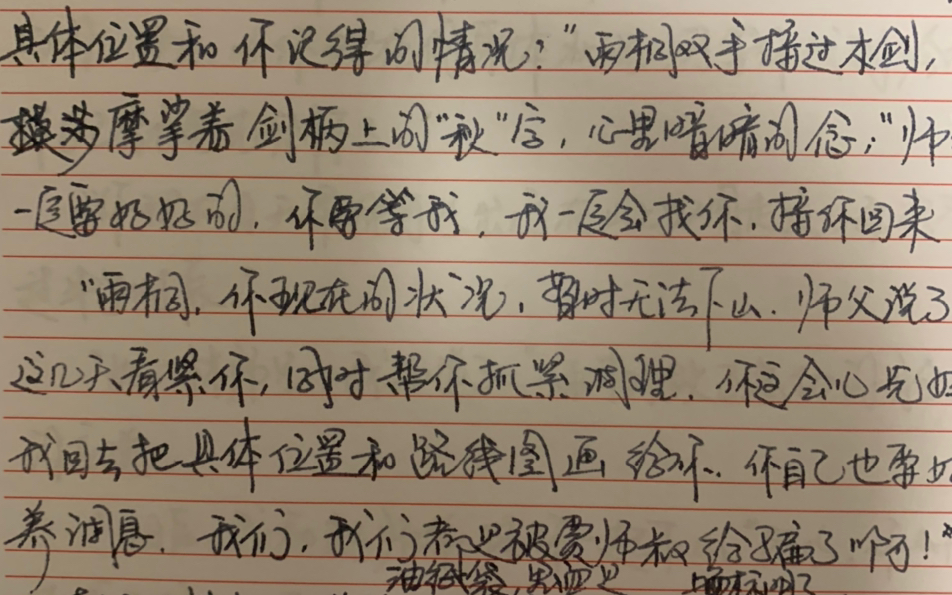 具体位置和你记得的情况:"雨桐双手接过木剑,
摩挲着剑柄上的"秋"字,心里暗暗的念,"师
一定要好好的,你要等我,我一定会找你,接你回来
"雨桐,你现在的状况,暂时无法下山.师父说了
这几天看紧你,同时帮你抓紧调理.你这会儿先好
我回去把具体位置和路线图画给你.你自己也要好
养调息.我们,我们都被费师叔给骗了啊!"